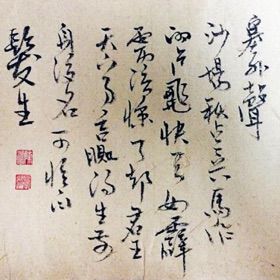 塞外聲
沙場秋点兵馬作
的卢飛快弓如霹
靂弦惊了却君王
天下事贏得生前
身後名可憐白
髮生